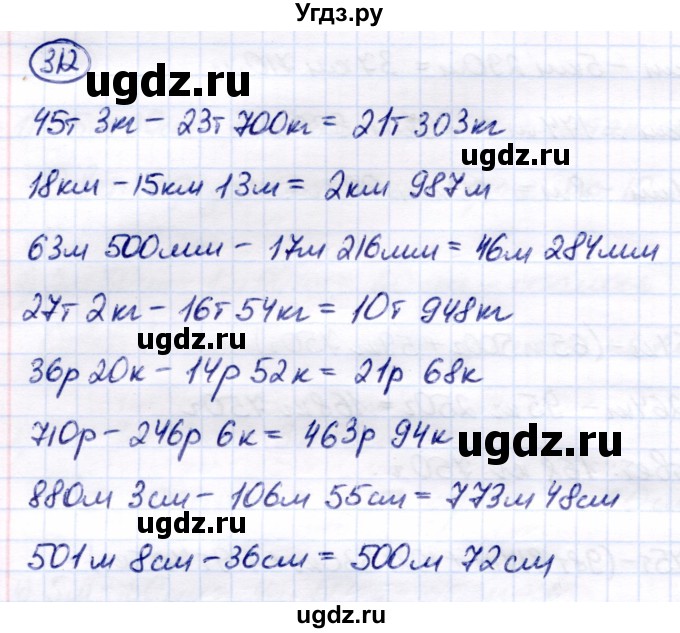 Угдз.ру
312
ugdz.ru
45т 3кг – 23т 700кг = 21т 303кг
ugdz.ru
18км – 15км 13м = 2км 987м
63м 500мм – 17м 216мм = 46м 284мм
27т 2кг – 16т 54кг = 10т 948кг
ugdz.ru
36р 20к – 14р 52к = 21р 68к
710р – 246р 6к = 463р 94к
ugdz.ru
880м 3см – 106м 55см = 773м 48см
ugdz.ru
501м 8см – 36см = 500м 72см
ugdz.ru